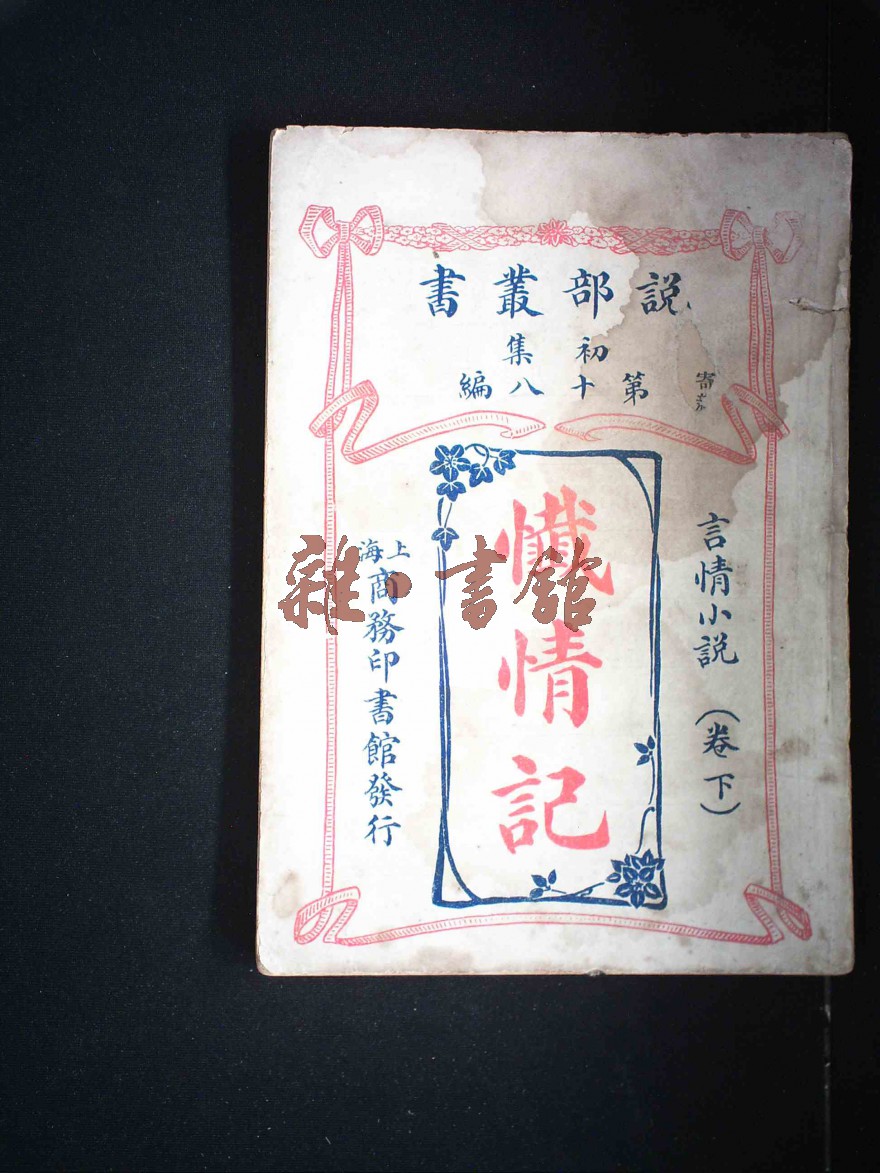 説部叢書
初集
第十八編
言情小説（卷下）
懺情記
上海商務印書館發行
雜·書館